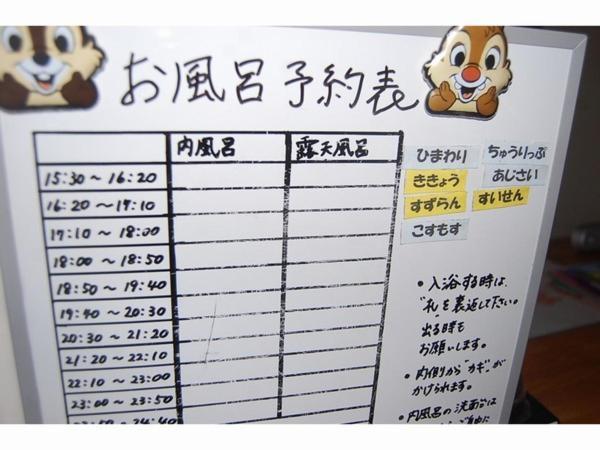 お風呂予約表
内風呂 露天風呂
15:30～16:20
16:20～17:10
17:10～18:00
18:00～18:50
18:50～19:40
19:40～20:30
20:30～21:20
21:20～22:10
22:10～23:00
23:00～23:50
23:50～24:40
ひまわり ちゅうりっぷ
ききょう あじさい
すずらん すいせん
こすもす
・入浴する時は、
札を裏返して下さい。
出る時も
お願いします。
・内側から"カギ"が
かけられます。
・内風呂の洗面台は